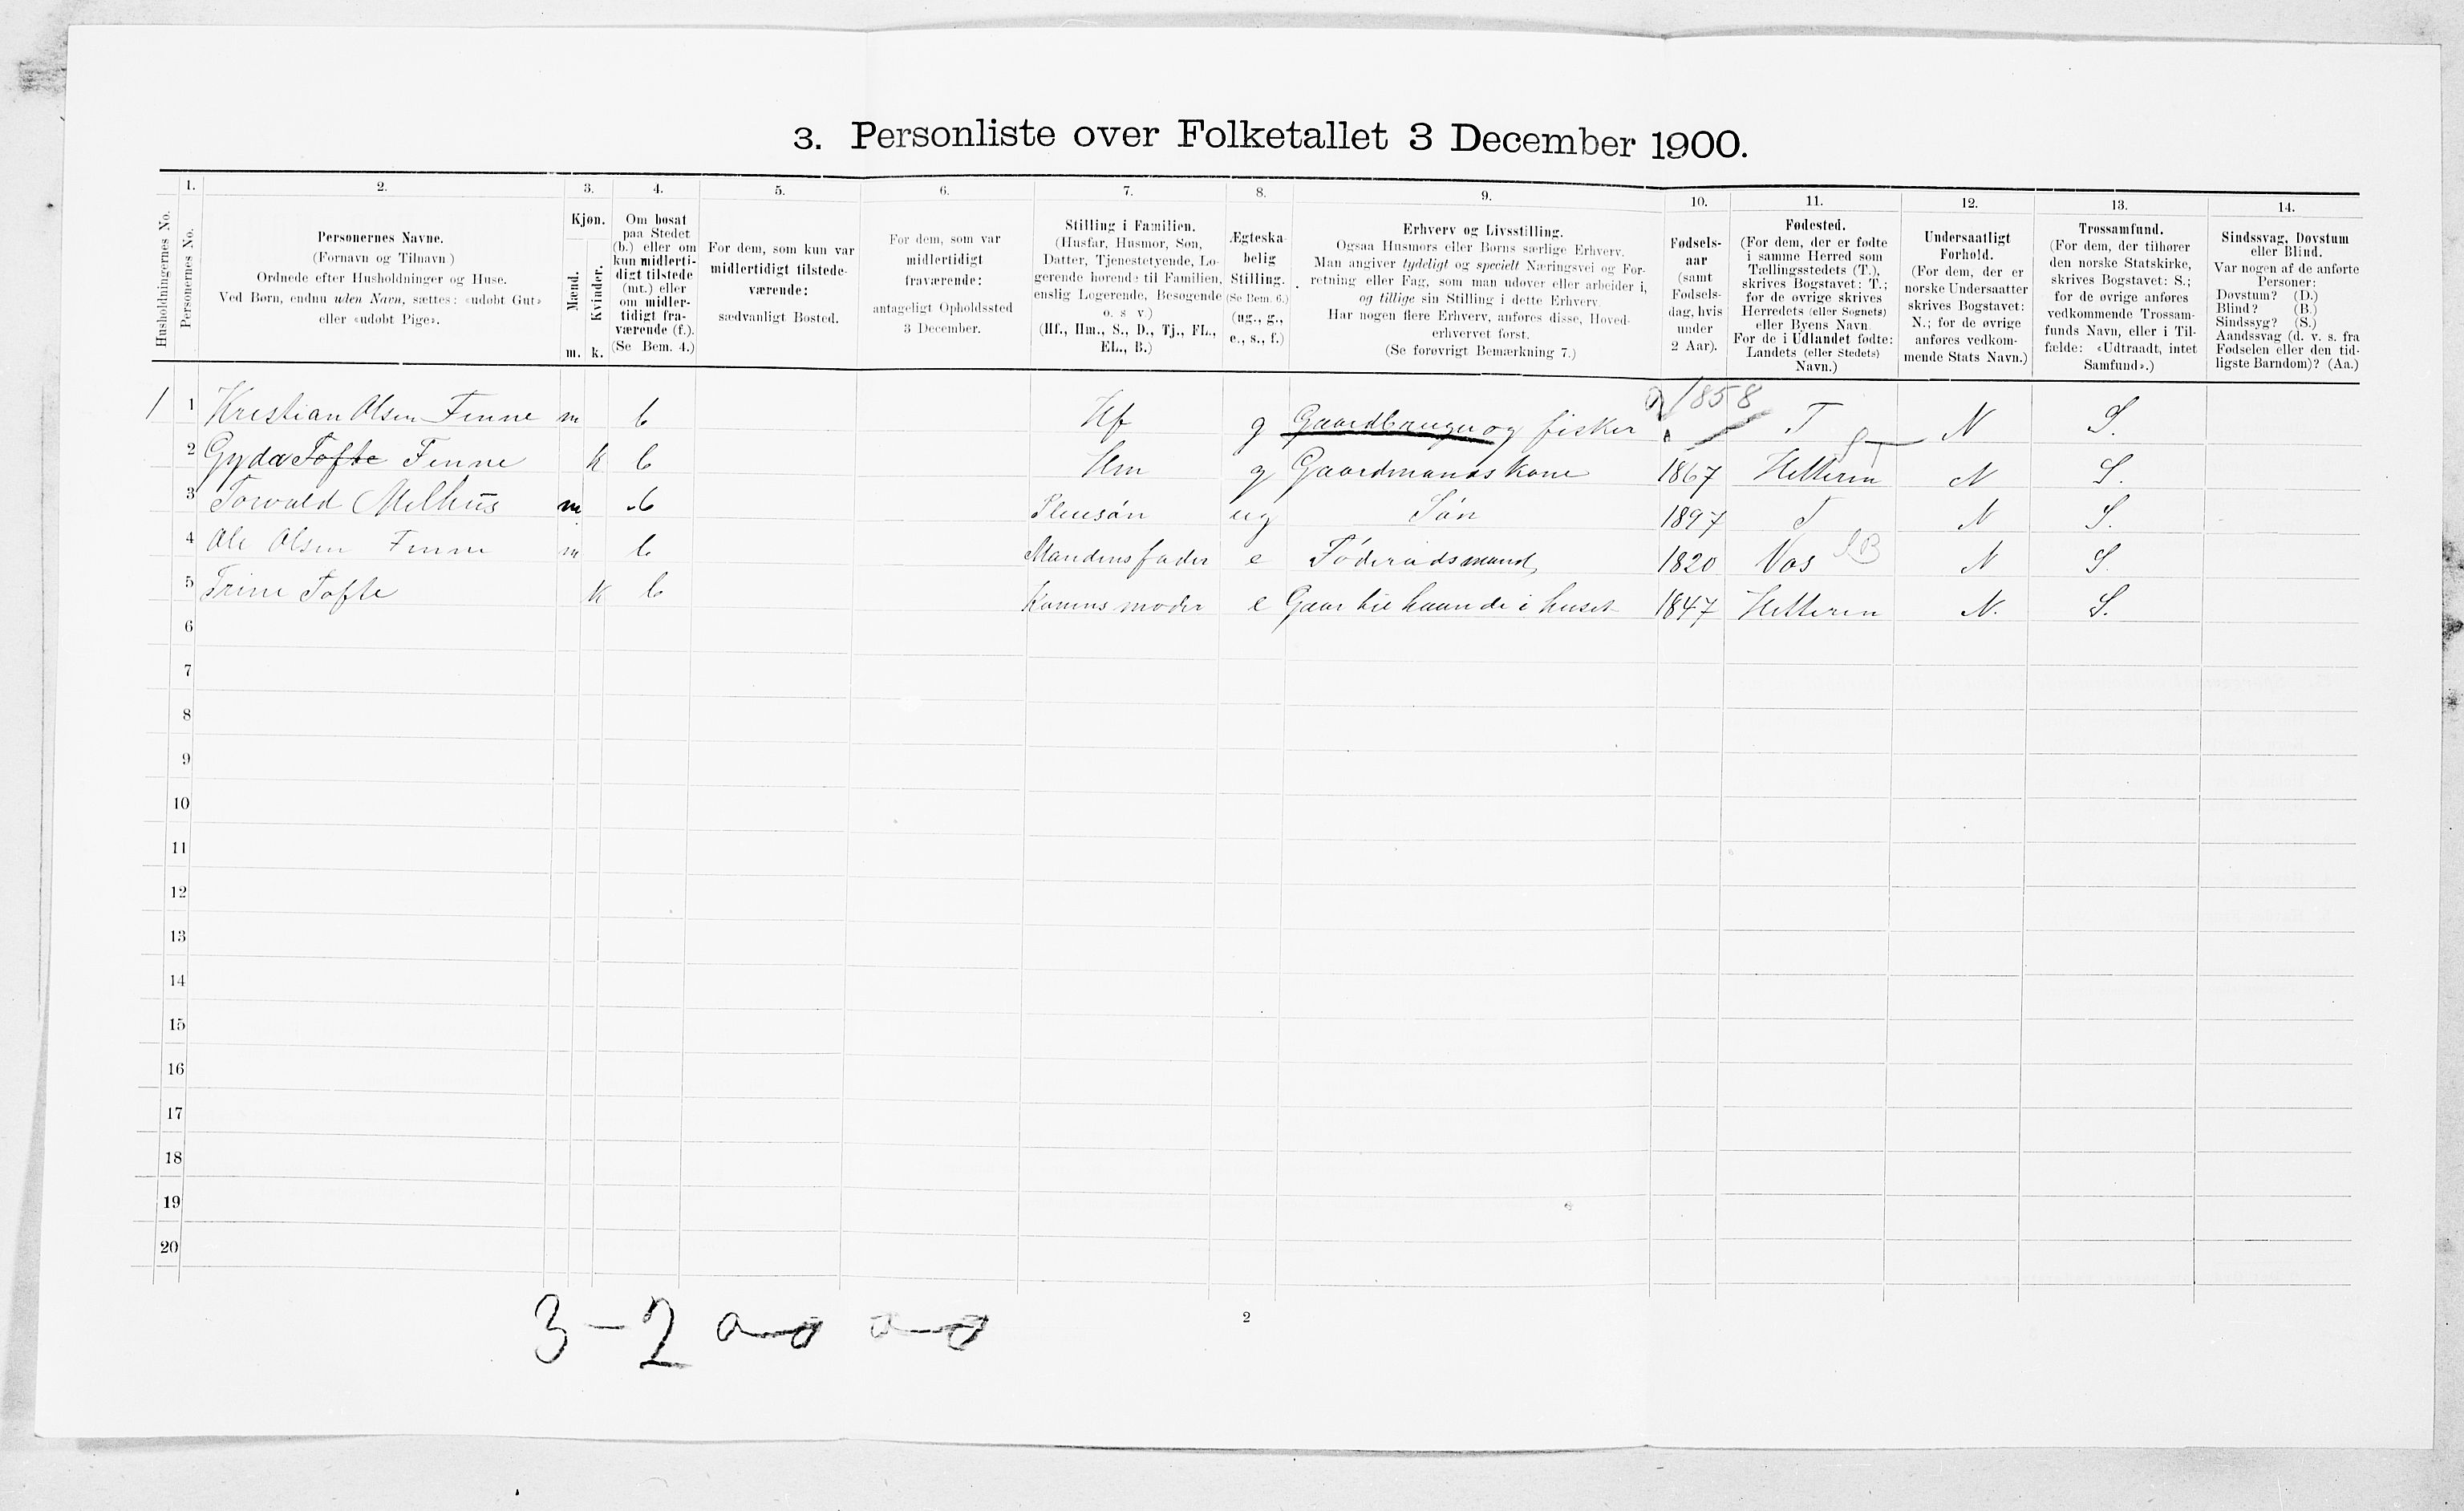 3. Personliste over Folketallet 3 December 1900.
Husholdningernes No.
1.
Personernes No.
2.
Personernes Navne.
(Fornavn og Tilnavn)
Ordnede efter Husholdninger og Huse.
Ved Børn, endnu uden Navn, sættes: «udøbt Gut»
eller «udøbt Pige».
3.
Kjøn.
Mænd.
Kvinder.
m. k.
4.
Om bosat
paa Stedet
(b.) eller om
kun midlerti-
digt tilstede
(mt.) eller
om midler-
tidigt fra-
værende (f.).
(Se Bem. 4.)
5.
For dem, som kun var
midlertidigt tilstede-
værende:
sædvanligt Bosted.
6.
For dem, som var
midlertidigt
fraværende:
antageligt Opholdssted
3 December.
7.
Stilling i Familien.
(Husfar, Husmor, Søn,
Datter, Tjenestetyende, Lo-
gerende hørende til Familien,
enslig Logerende, Besøgende
o. s v.)
(Hf., Hm., S., D., Tj., FL.,
EL., B.)
8.
Ægteska-
belig
Stilling.
(Se Bem. 6.)
(ug., g.,
e., s., f.)
9.
Erhverv og Livsstilling.
Ogsaa Husmors eller Børns særlige Erhverv.
Man angiver tydeligt og specielt Næringsvei og For-
retning eller Fag, som man udøver eller arbeider i,
og tillige sin Stilling i dette Erhverv.
Har nogen flere Erhverv, anføres disse, Hoved-
erhvervet først.
(Se forøvrigt Bemærkning 7.)
10.
Fødsels-
aar
(samt
Fødsels-
dag, hvis
under
2 Aar).
11.
Fødested.
(For dem, der er fødte
i samme Herred som
Tællingsstedets (T.),
skrives Bogstavet: T.;
for de øvrige skrives
Herredets (eller Sognets)
eller Byens Navn.
For de i Udlandet fødte:
Landets (eller Stedets)
Navn.)
12.
Undersaatligt
Forhold.
(For dem, der er
norske Undersaatter
skrives Bogstavet:
N.; for de øvrige
anføres vedkom-
mende Stats Navn.)
13.
Trossamfund.
(For dem, der tilhører
den norske Statskirke,
skrives Bogstavet: S.;
for de øvrige anføres
vedkommende Trossam-
funds Navn, eller i Til-
fælde: «Udtraadt, intet
Samfund».)
14.
Sindssvag, Døvstum
eller Blind.
Var nogen af de anførte
Personer:
Døvstum? (D.)
Blind? (B.)
Sindssyg? (S.)
Aandssvag (d. v. s. fra
Fødselen eller den tid-
ligste Barndom)? (Aa.)
1 1 Kristian Olsen Finne m b Hf g Gaardbruger og fisker 1858 T N S.
2 Gyda Tofte Finne k b Hm g Gaardmands kone 1867 Hitteren N S.
3 Torvald Melhus m b Pleiesøn ug Søn 1897 T N S.
4 Ole Olsen Finne m b Mandens fader e Føderadsmand 1820 Vos SB N S.
5 Trine Tofte k b Konens moder e Gaar tie haande i huset 1847 Hitteren N. S.
6
7
8
9
10
11
12
13
14
15
16
17
18
19
20
3 – 2
2